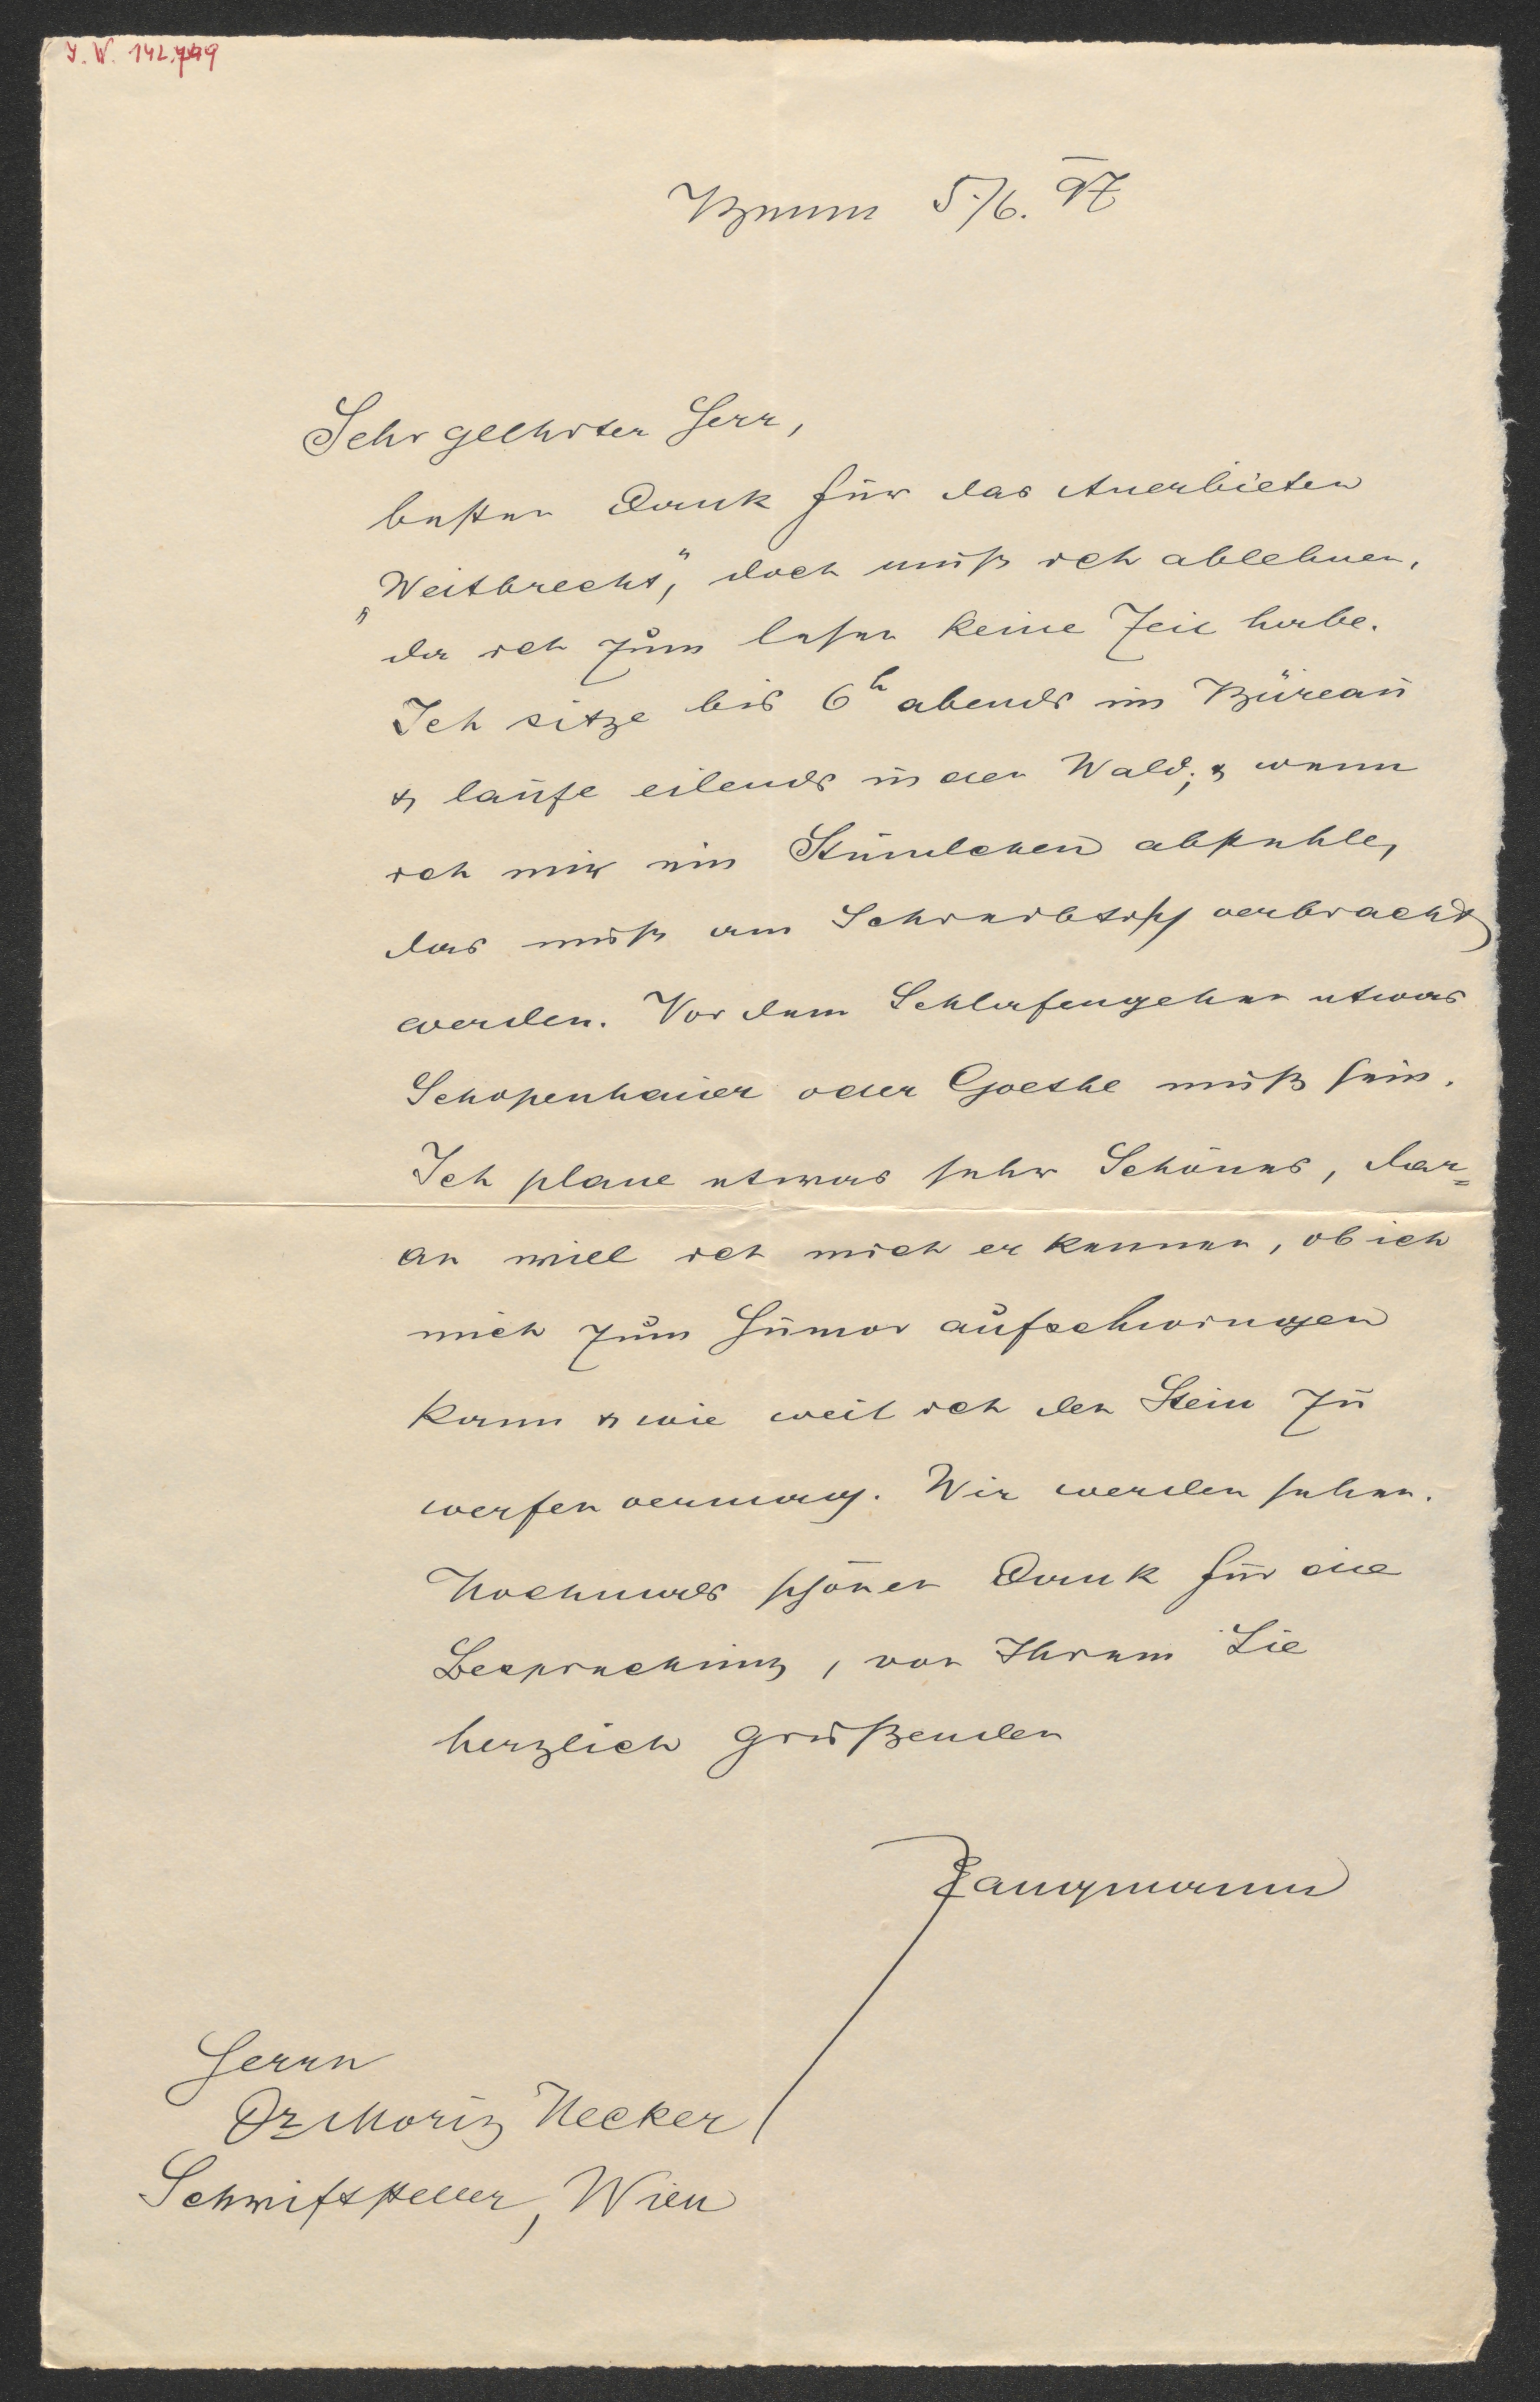 J. W. 142.749
Brünn 5./6. 97
Sehr geehrter Herr,
besten Dank für das Anerbieten
„Weitbrecht“, doch muß ich ablehnen,
da ich zum lesen keine Zeit habe.
Ich sitze bis 6h abends im Büreau
& laufe eilends in den Wald; & wenn
ich mir ein Stündchen abstehle,
das muß am Schreibtisch verbracht
werden. Vor dem Schlafengehen etwas
Schopenhauer oder Goethe muß sein.
Ich plane etwas sehr Schönes, dar=
an will ich mich erkennen, ob ich
mich zum Humor aufschwingen
kann & wie weit ich den Stein zu
werfen vermag. Wir werden sehen.
Nochmals schönen Dank für die
Besprechung, von Ihrem Sie
herzlich grüßenden
Langmann
Herrn
Dr Moriz Necker
Schriftsteller, Wien